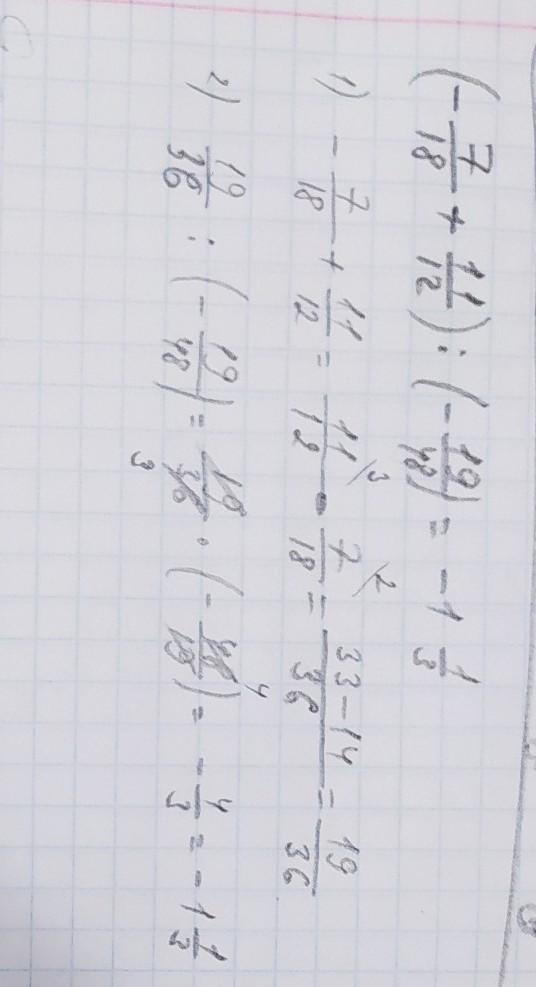 (-7/18 + 11/12) : (-19/48) = -1 1/3
1) -7/18 + 11/12 = 11/12 \3 - 7/18 \2 = 33-14/36 = 19/36
2) 19/36 : (-19/48) = 19/36 3 · (-48/19 4) = -4/3 = -1 1/3